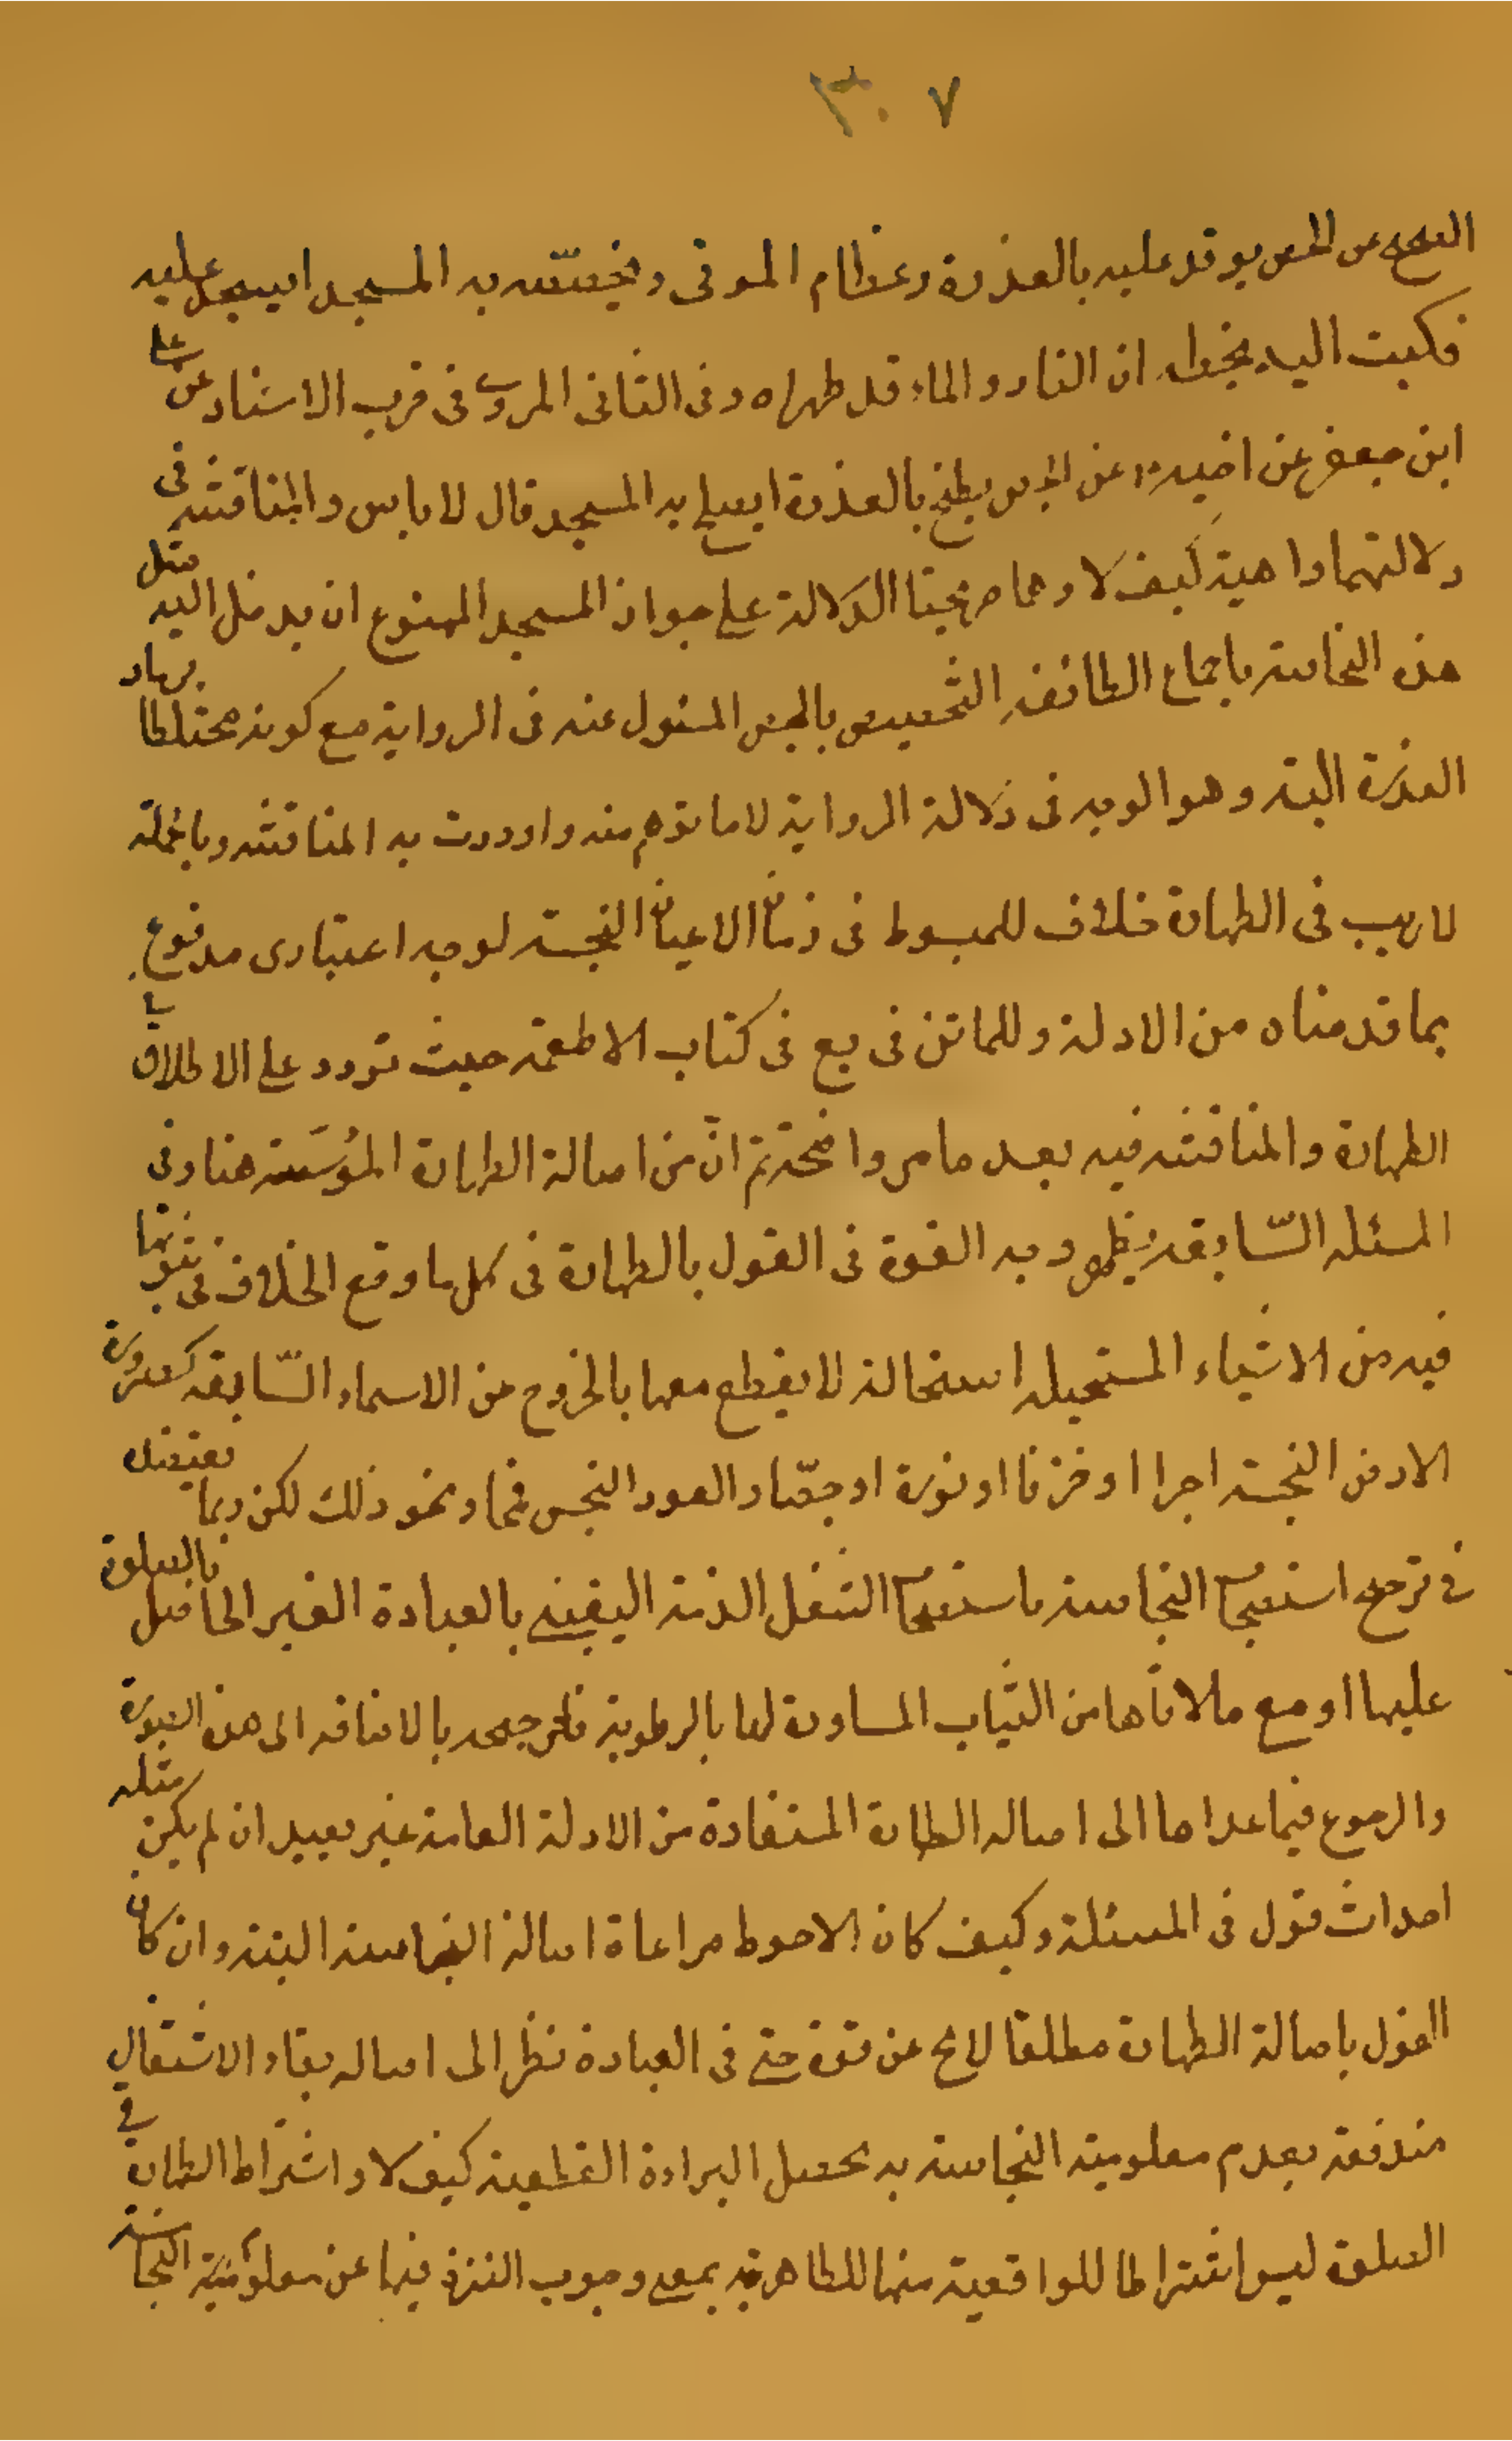 ٣٠٧
الصحيح عن الجص يوقد عليه بالعذرة وعظام الموتى ويجصص به المسجد ايسجد عليه
فكتبت اليه بخطه ان النار والماء قد طهراه وفى الثانى المروى فى قرب الاسناد عن على
ابن جعفر عن اخيه عن الجص يطبخ بالعذرة ايصلح به المسجد قال لا باس والمناقشه فى
دلالتهما واهية كيف لا وهما صريحتا الدلالة على جواز المسجد الممنوع ان يدخل اليه مثل
هذه النجاسة باجماع الطائفه التجصيص بالجص المسئول عنه فى الرواية مع كونه مختلطا برماد
العذرة البتة وهو الوجه فى دلالة الرواية لا ما توهم منه واوردت به المناقشه وبالجملة
لا ريب فى الطهارة خلاف للمبسوط فى دخان الاعيان النجسة لوجه اعتبارى مدفوع
بما قدمناه من الادلة وللماتن فى يع فى كتاب الاطعمة حيث تردد على الاطلاق يا
الطهارة والمناقشه فيه بعد ما مر واضحة ثم ان من اصالة الطهارة المؤسسة هنا وفى
المسئله السابقه يظهر وجه القوة فى القول بالطهارة فى كل ما وقع الخلاف فى ثبوتها
فيه من الاشياء المستحيله استحالة لا يقطع معها بالخروج عن الاسماء السابقه كصيرورة
الارض النجسة اجرا او خزفا او نورة او جصا والعود النجس فحما ونحو ذلك لكن ربما يعتضد
فى ترجيح استصحاب النجاسة باستصحاب الشغل الذمة اليقينى بالعبادة الغير الحاصل بالصلوة
عليها او مع ملاقاها من الثياب المساورة لها بالرطوبة فلترجيحه بالاضافه الى هذه الصورة
والرجوع فيما عداها الى اصاله الطهارة المستفادة من الادلة العامة غير بعيد ان لم يكن مثله
احداث قول فى المسئلة وكيف كان الاحوط مراعاة اصالة النجاسة البتة وان كان
القول باصالة الطهارة مطلقا لا يخ عن قوة حتى فى العبادة نظرا الى اصاله بقاء الاشتغال
مندفعة بعدم معلومية النجاسة به يحصل البراءة القطعية كيف لا واشتراط الطهارة فى
الصلوة ليس اشتراطا للواقعية منها للظاهرية بمعنى وجوب التنزه فيها عن معلومية النجاسة